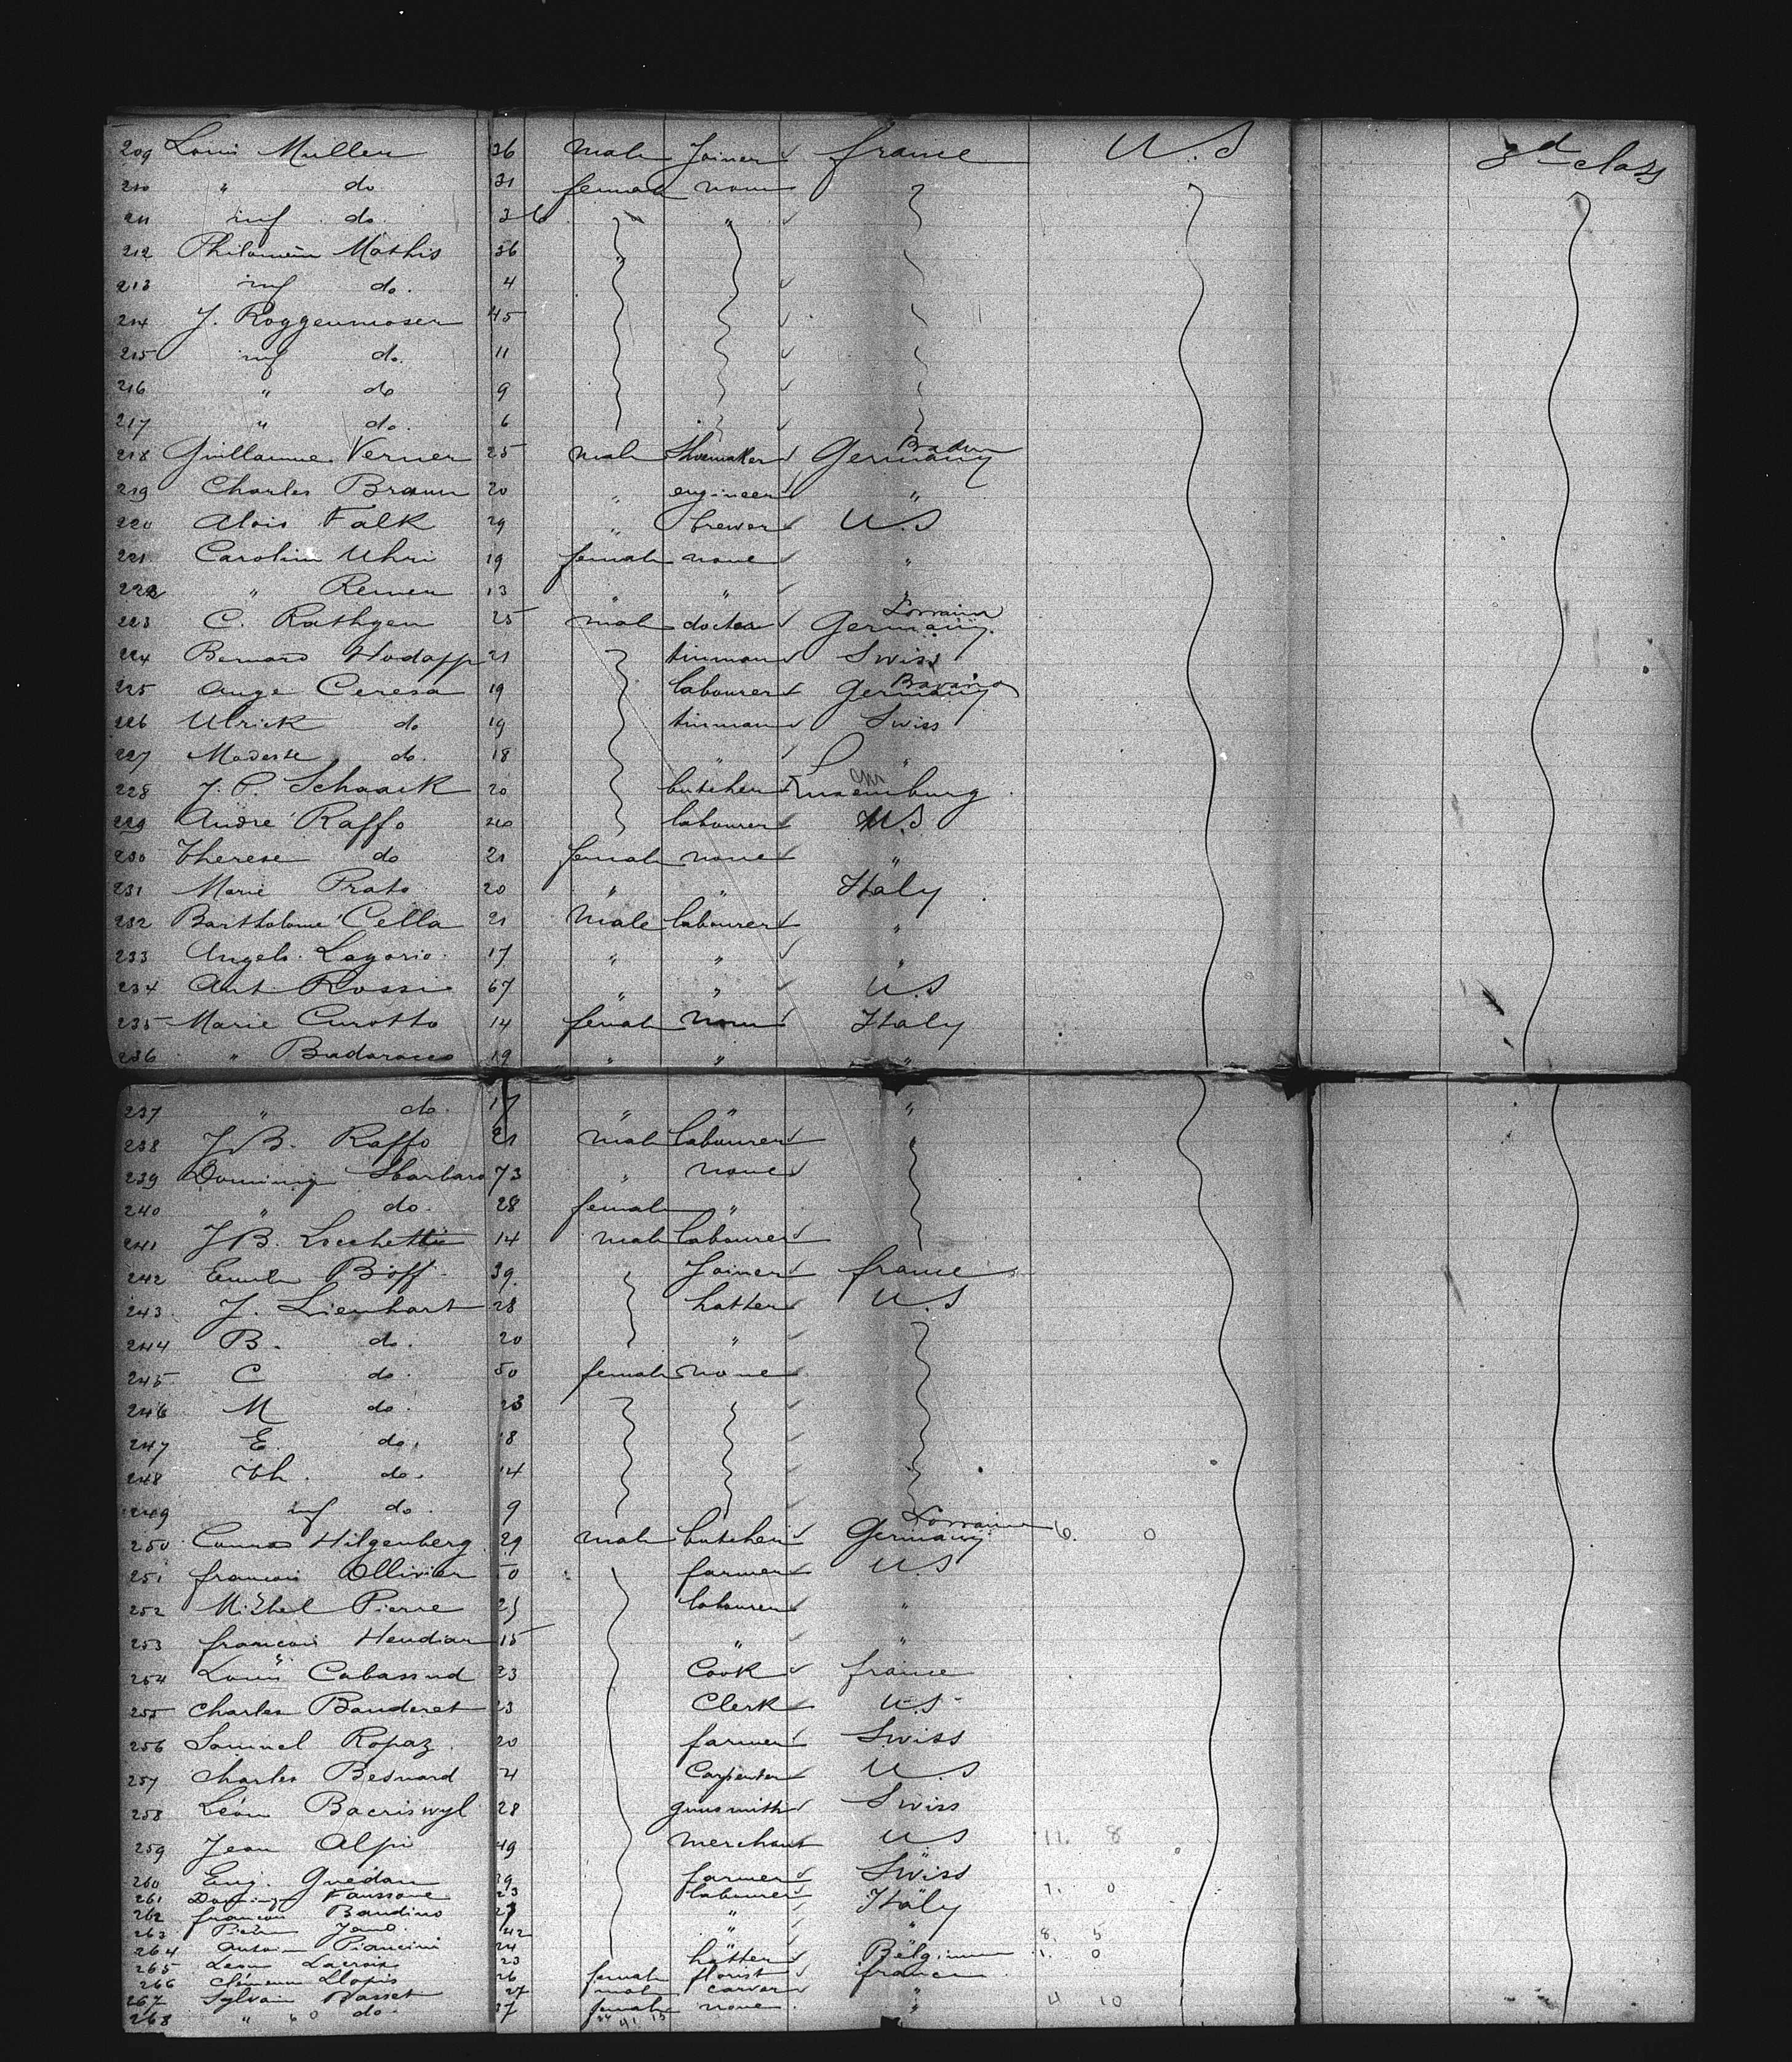 209 Louis Muller 36 male Joiner france U.S 3d class
210 " do 31 female none
211 inf do. "
212 Mathis 36 "
213 inf do. 4
214 J. Roggenmoser 45
215 inf do. 11
216 " do 9
217 " do. 6
218 Guillaume Verner 25 male Shoemaker Germany Baden
219 Charles Braun 20 " engineer "
220 Alois Falk 29 " brewer U.S
221 Carolin Uhri 19 female none "
222 " Remen 13 " "
223 C. Rathgen 25 male doctor Germany Lorraine
224 Bernard Hodapp 21 tinman Swiss
225 Ange Ceresa 19 labourer Germany Bavaria
226 Ulrick do 19 tinman Swiss
227 Modeste do. 18 " "
228 J. P. Schaack 20 butcher Luxemburg
229 André Raffo labourer U.S
230 Therese do 21 female none "
231 Marie Prato 20 " " Italy
232 Bartholome Cella 21 Male labourer "
233 Angelo Lagorio 17 " " "
234 Ant Rossi 67 " " U.S
235 Marie Curotto 14 female none Italy
236 " Badaracco 19 " " "
237 " do. 17 " " "
238 J. B. Raffo 21 male labourer "
239 Sbarbaro 73 " none
240 " do. 28 female "
241 J B. 14 male labourer
242 Boff 39 Joiner france
243 J. Lienhart 28 hatter U.S
244 B. do. 20 "
245 C do. 50 female none
246 M do. 23
247 E. do. 18
248 Th. do. 14
249 inf do. 9
250 Hilgenberg 29 male butcher Germany Lorraine 6. 0
251 francois Ollivier farmer U.S
252 Michel Pierre labourer "
253 francois 15 " "
254 Louis Cabassud 23 Cook france
255 Charles Banderet 23 Clerk U.S
256 Samuel Ropaz 20 farmer Swiss
257 Charles Besnard Carpenter U.S
258 Léon Baeriswyl 28 gunsmith Swiss
259 Jean Alpi 49 Merchant U S 11. 8
260 Eug. Guédan 29 farmer Swiss
261 Faussone 23 labourer Italy 0
262 francois Bandino " "
263 42 " " 8. 5
264 Antoin Piancini 24
265 Leon Lacroix 23 hatter Belgium 1. 0
266 Llopis 26 female florist france
267 Sylvain Basset 27 male carver " 4 10
268 " do. female none "